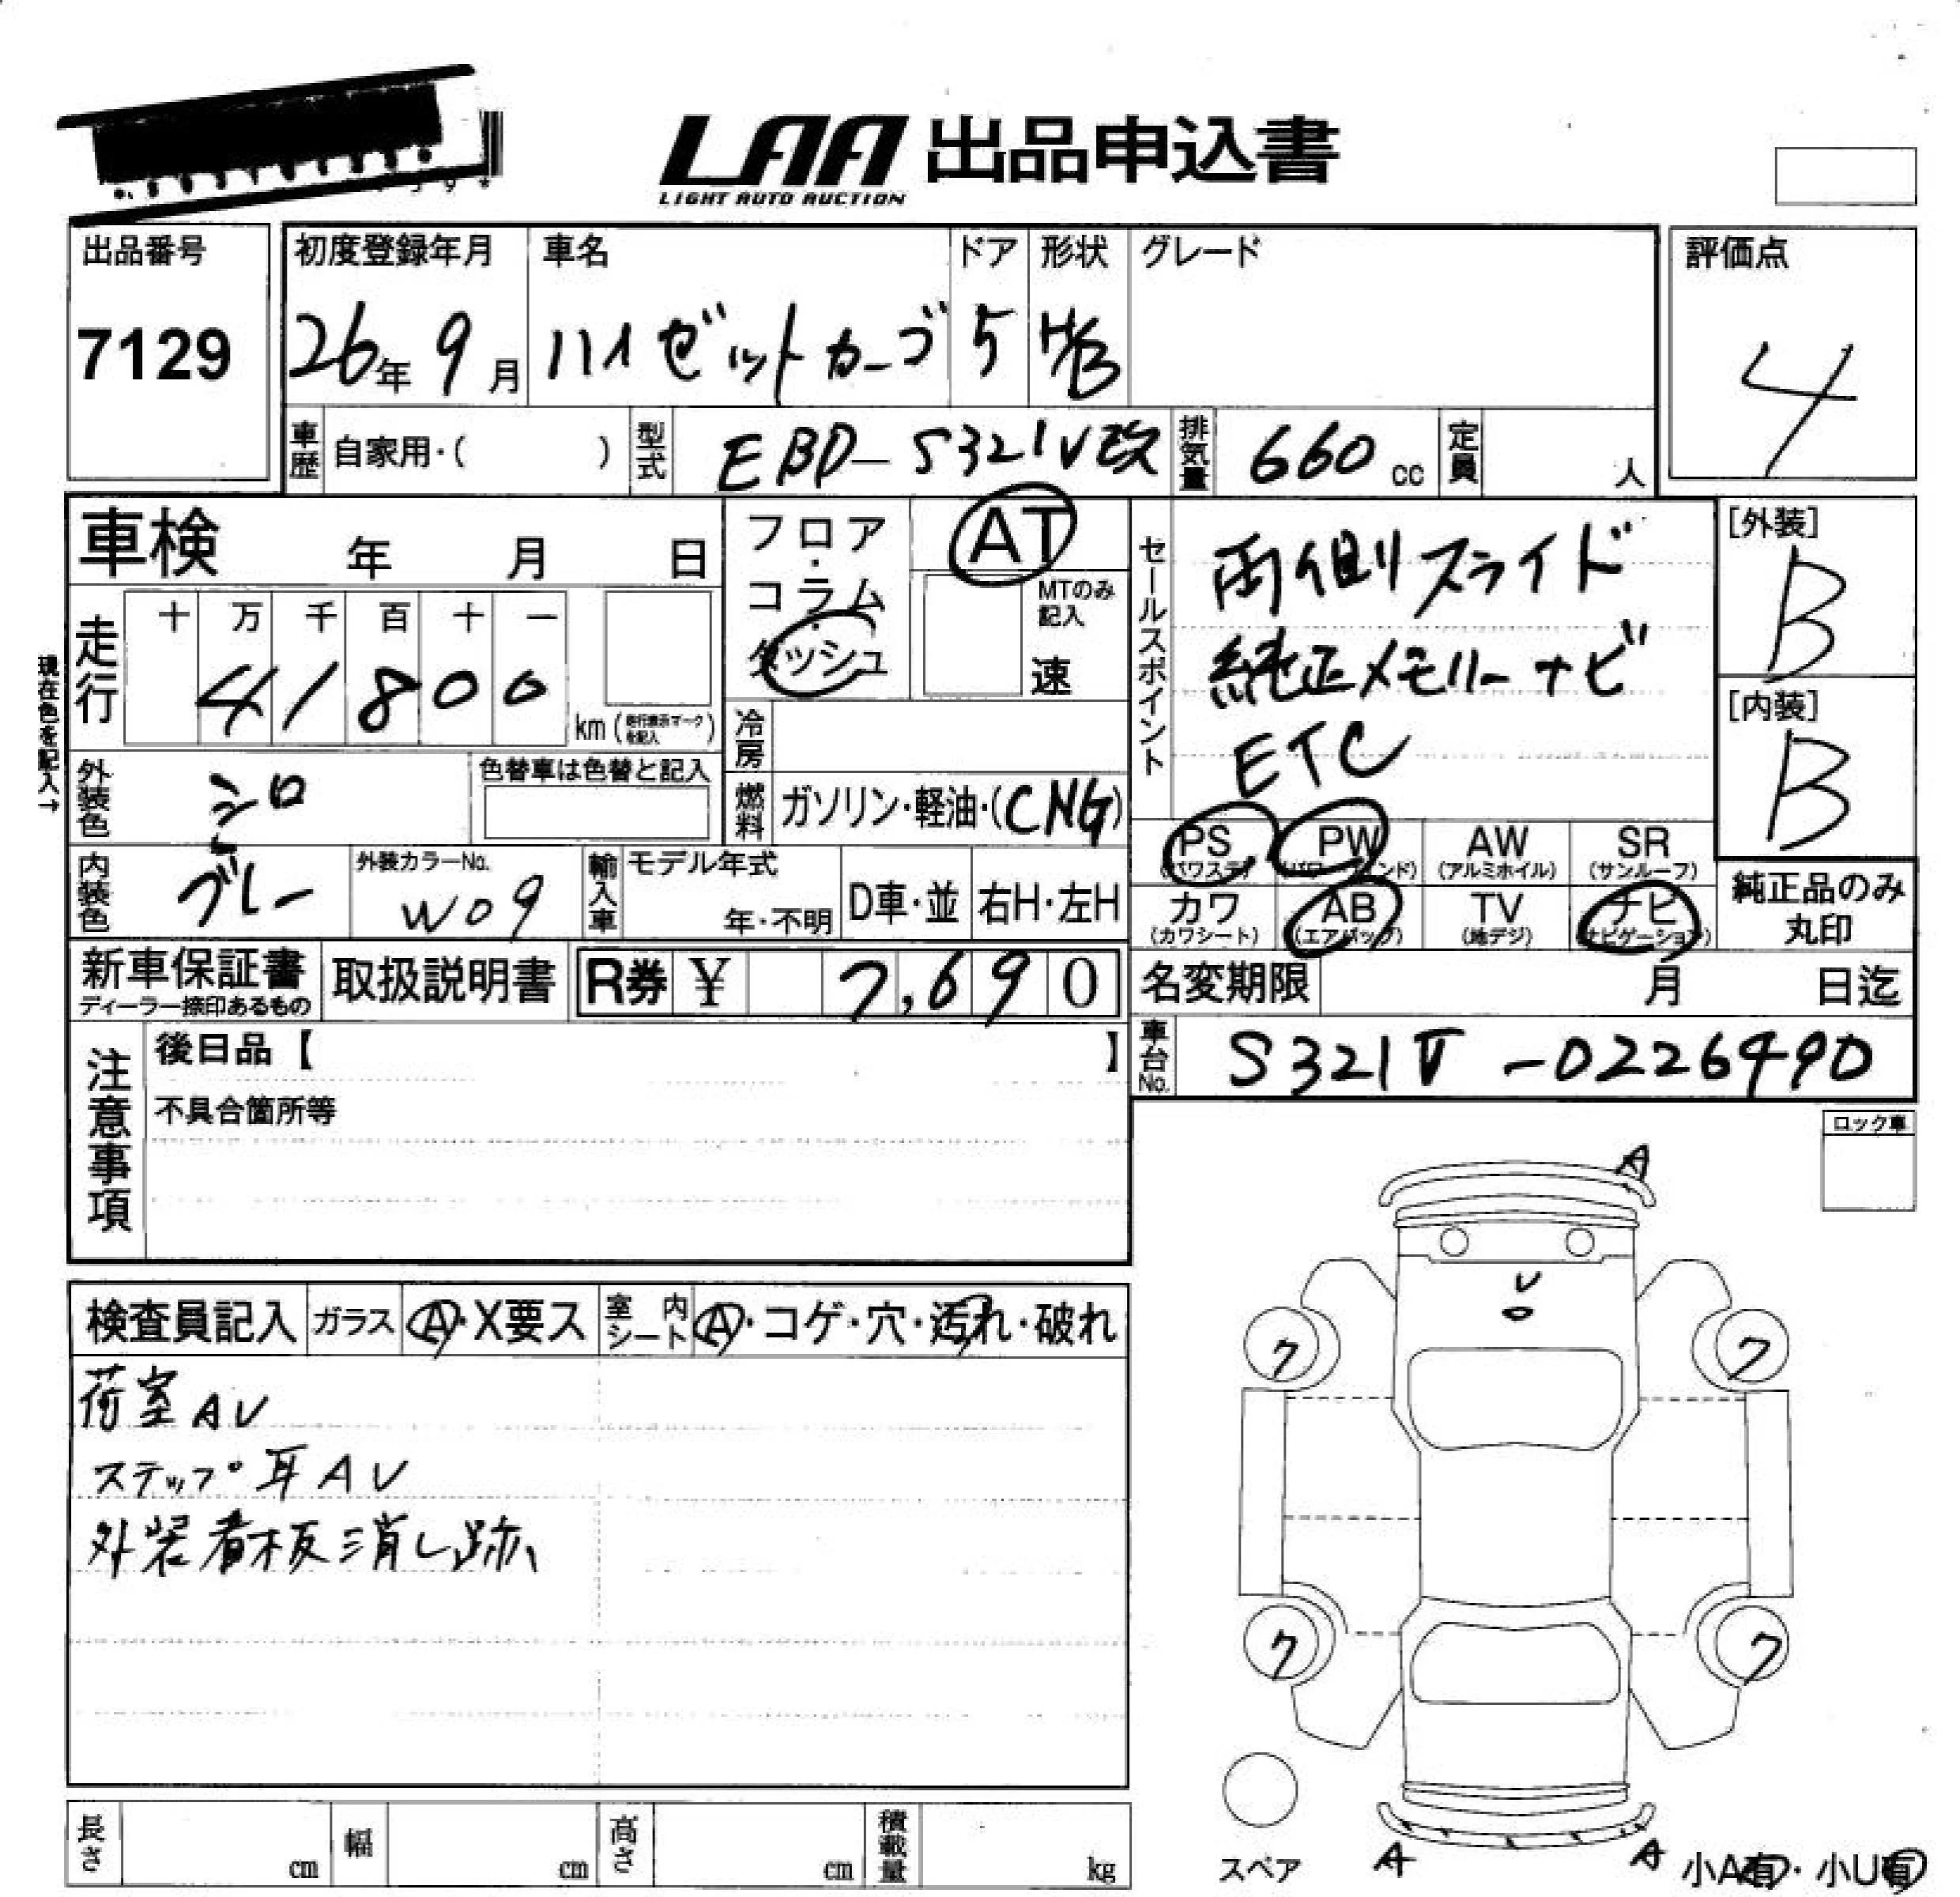 LAA 出品申込書
LIGHT AUTO AUCTION
出品番号
7129
初度登録年月
26年 9月
車名
ハイゼットカーゴ
ドア
5
形状
H/B
グレード
評価点
4
車歴 自家用・( )
型式 EBD-S321V改
排気量 660 cc
定員 人
車検 年 月 日
フロア・コラム・ダッシュ
AT
MTのみ記入
速
セールスポイント
両側スライド
純正メモリーナビ
ETC
[外装]
B
[内装]
B
現在色を記入→
走行
十 万 千 百 十 一
4 1 8 0 0
km (走行表示マークを記入)
冷房
外装色 シロ
色替車は色替と記入
燃料 ガソリン・軽油・(CNG)
PS (パワステ)
PW (パワーウィンド)
AW (アルミホイル)
SR (サンルーフ)
内装色 グレー
外装カラーNo.
W09
輸入車 モデル年式
年・不明
D車・並
右H・左H
カワ (カワシート)
AB (エアバッグ)
TV (地デジ)
ナビ (ナビゲーション)
純正品のみ丸印
新車保証書
ディーラー捺印あるもの
取扱説明書
R券 ¥ 7,690
名変期限 月 日迄
車台No. S321V-0226490
注意事項
後日品【 】
不具合箇所等
ロック車
A
検査員記入 ガラス A・X要ス 室内シート A・コゲ・穴・汚れ・破れ
荷室AV
ステップ耳AV
外装看板消し跡
ク ク
ク ク
スペア
A A
小A有・小U有
長さ cm
幅 cm
高さ cm
積載量 kg